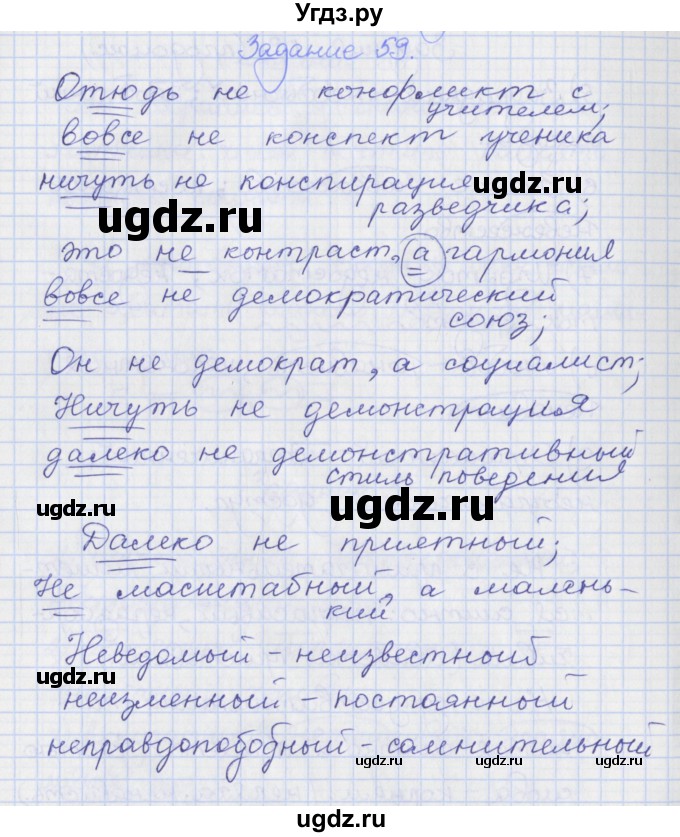 Угдз.ру
Задание 59.
Отнюдь не конфликт с
учителем;
вовсе не конспект ученика
ничуть не конспирация
ugdz.ru
разведчика;
ugdz.ru
это не контраст, а гармония
вовсе не демократический
союз;
Он не демократ, а социалист;
Ничуть не демонстрация
далеко не демонстративный
стиль поведения
ugdz.ru
ugdz.ru
Далеко не приятный;
Не масштабный, а малень-
кий
ugdz.ru
Неведомый - неизвестный
неизменный - постоянный
неправдоподобный - сомнительный
ugdz.ru ugdz.ru
ugdz.ru